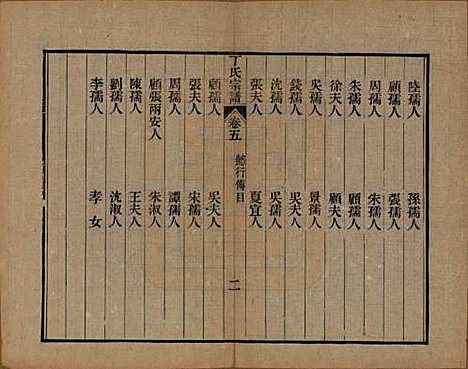 陸孺人 孫孺人
顧孺人 張孺人
周孺人 朱孺人
朱孺人 顧孺人
徐夫人 顧夫人
吳孺人 景孺人
錢孺人 吳夫人
沈孺人 吳孺人
張夫人 夏宜人
丁氏宗譜 卷五 懿行傳目 二
顧孺人 吳夫人
張夫人 宋孺人
周孺人 譚孺人
顧張兩安人 朱淑人
陳孺人 王夫人
劉孺人 沈淑人
李孺人 孝女